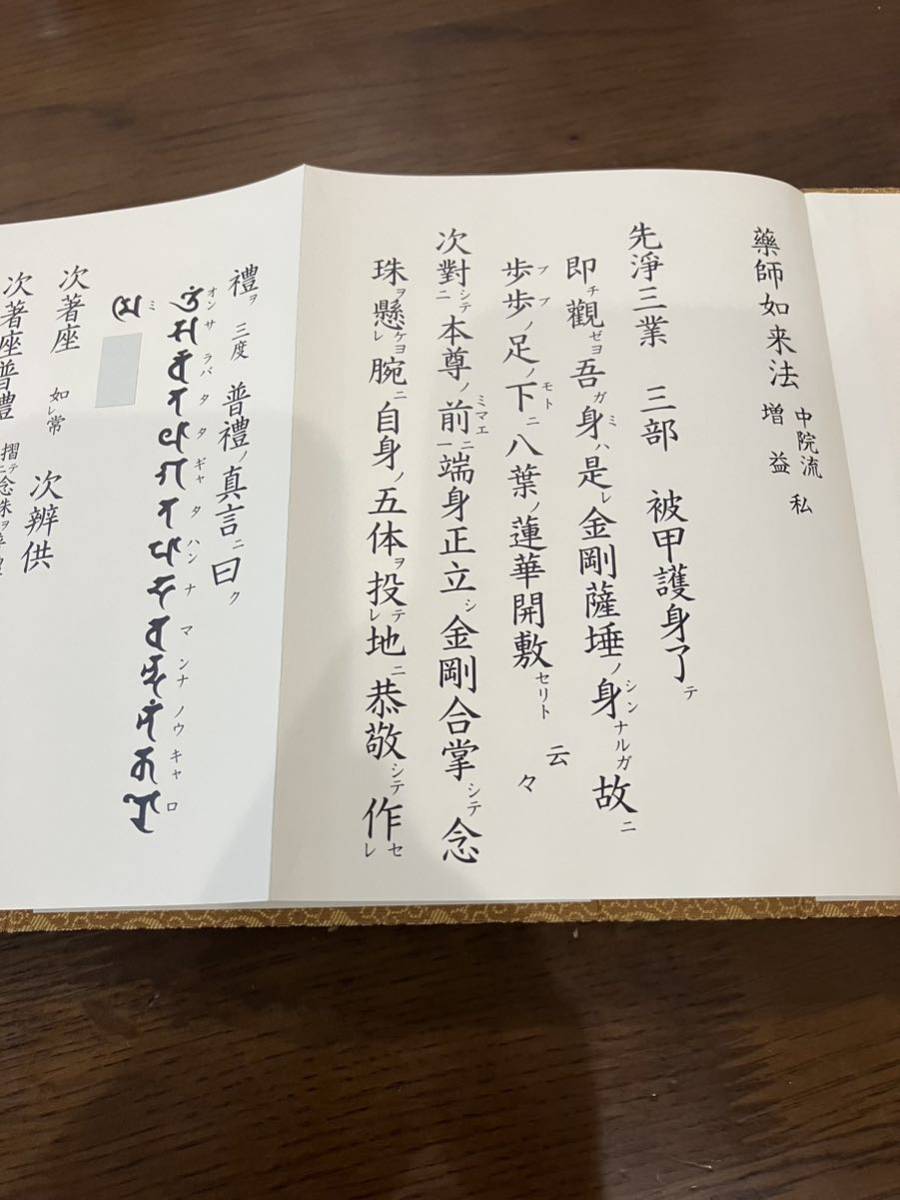 藥師如来法 中院流 私
増益
先淨三業 三部 被甲護身了テ
即チ觀ゼヨ吾ガ身ハ是レ金剛薩埵ノ身シンナルガ故ニ
歩歩ブブノ足ノ下モトニ八葉ノ蓮華開敷セリト 云々
次對シテ二本尊ノ前ミマエニ一端身正立シ金剛合掌シテ念
珠ヲ懸ケヨレ腕ニ自身ノ五体ヲ投テレ地ニ恭敬シテ作セレ
禮ヲ 三度 普禮ノ真言ニ曰ク
オンサラバタタギャタハンナマンナノウキャロ
ミ
次著座 如レ常 次辨供
次著座普禮 摺テ二念珠ヲ